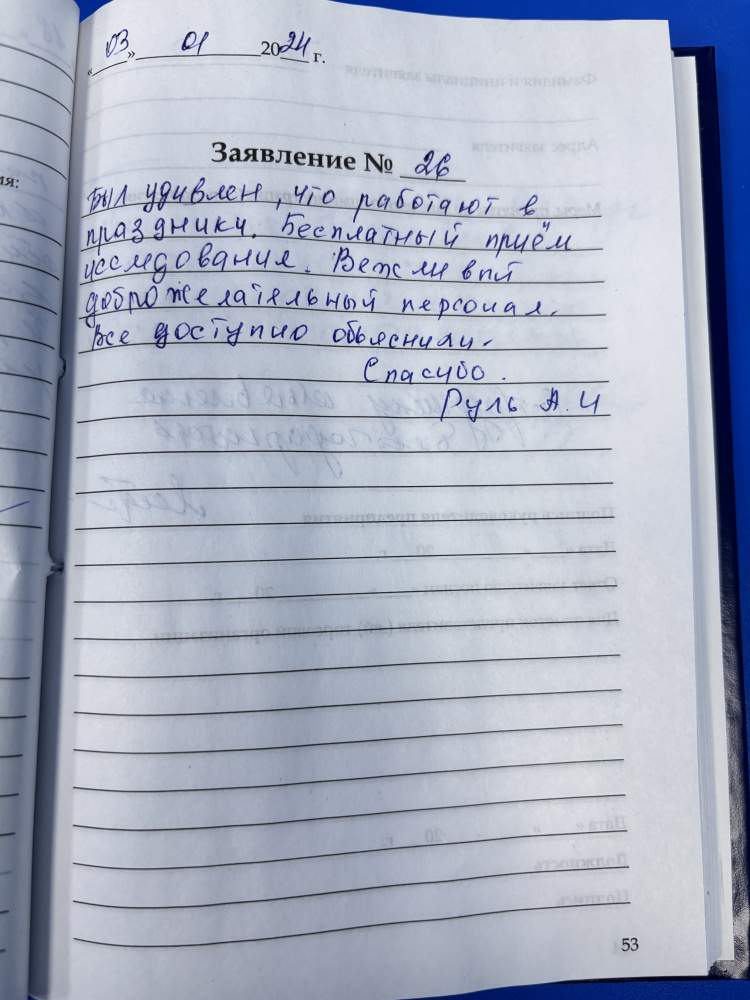 «03» 01 2024 г.
Заявление № 26
Был удивлен, что работают в
праздники. Бесплатный приём
исследования. Вежливый
доброжелательный персонал.
Все доступно объяснили.
Спасибо.
Руль А. И
ия:
53